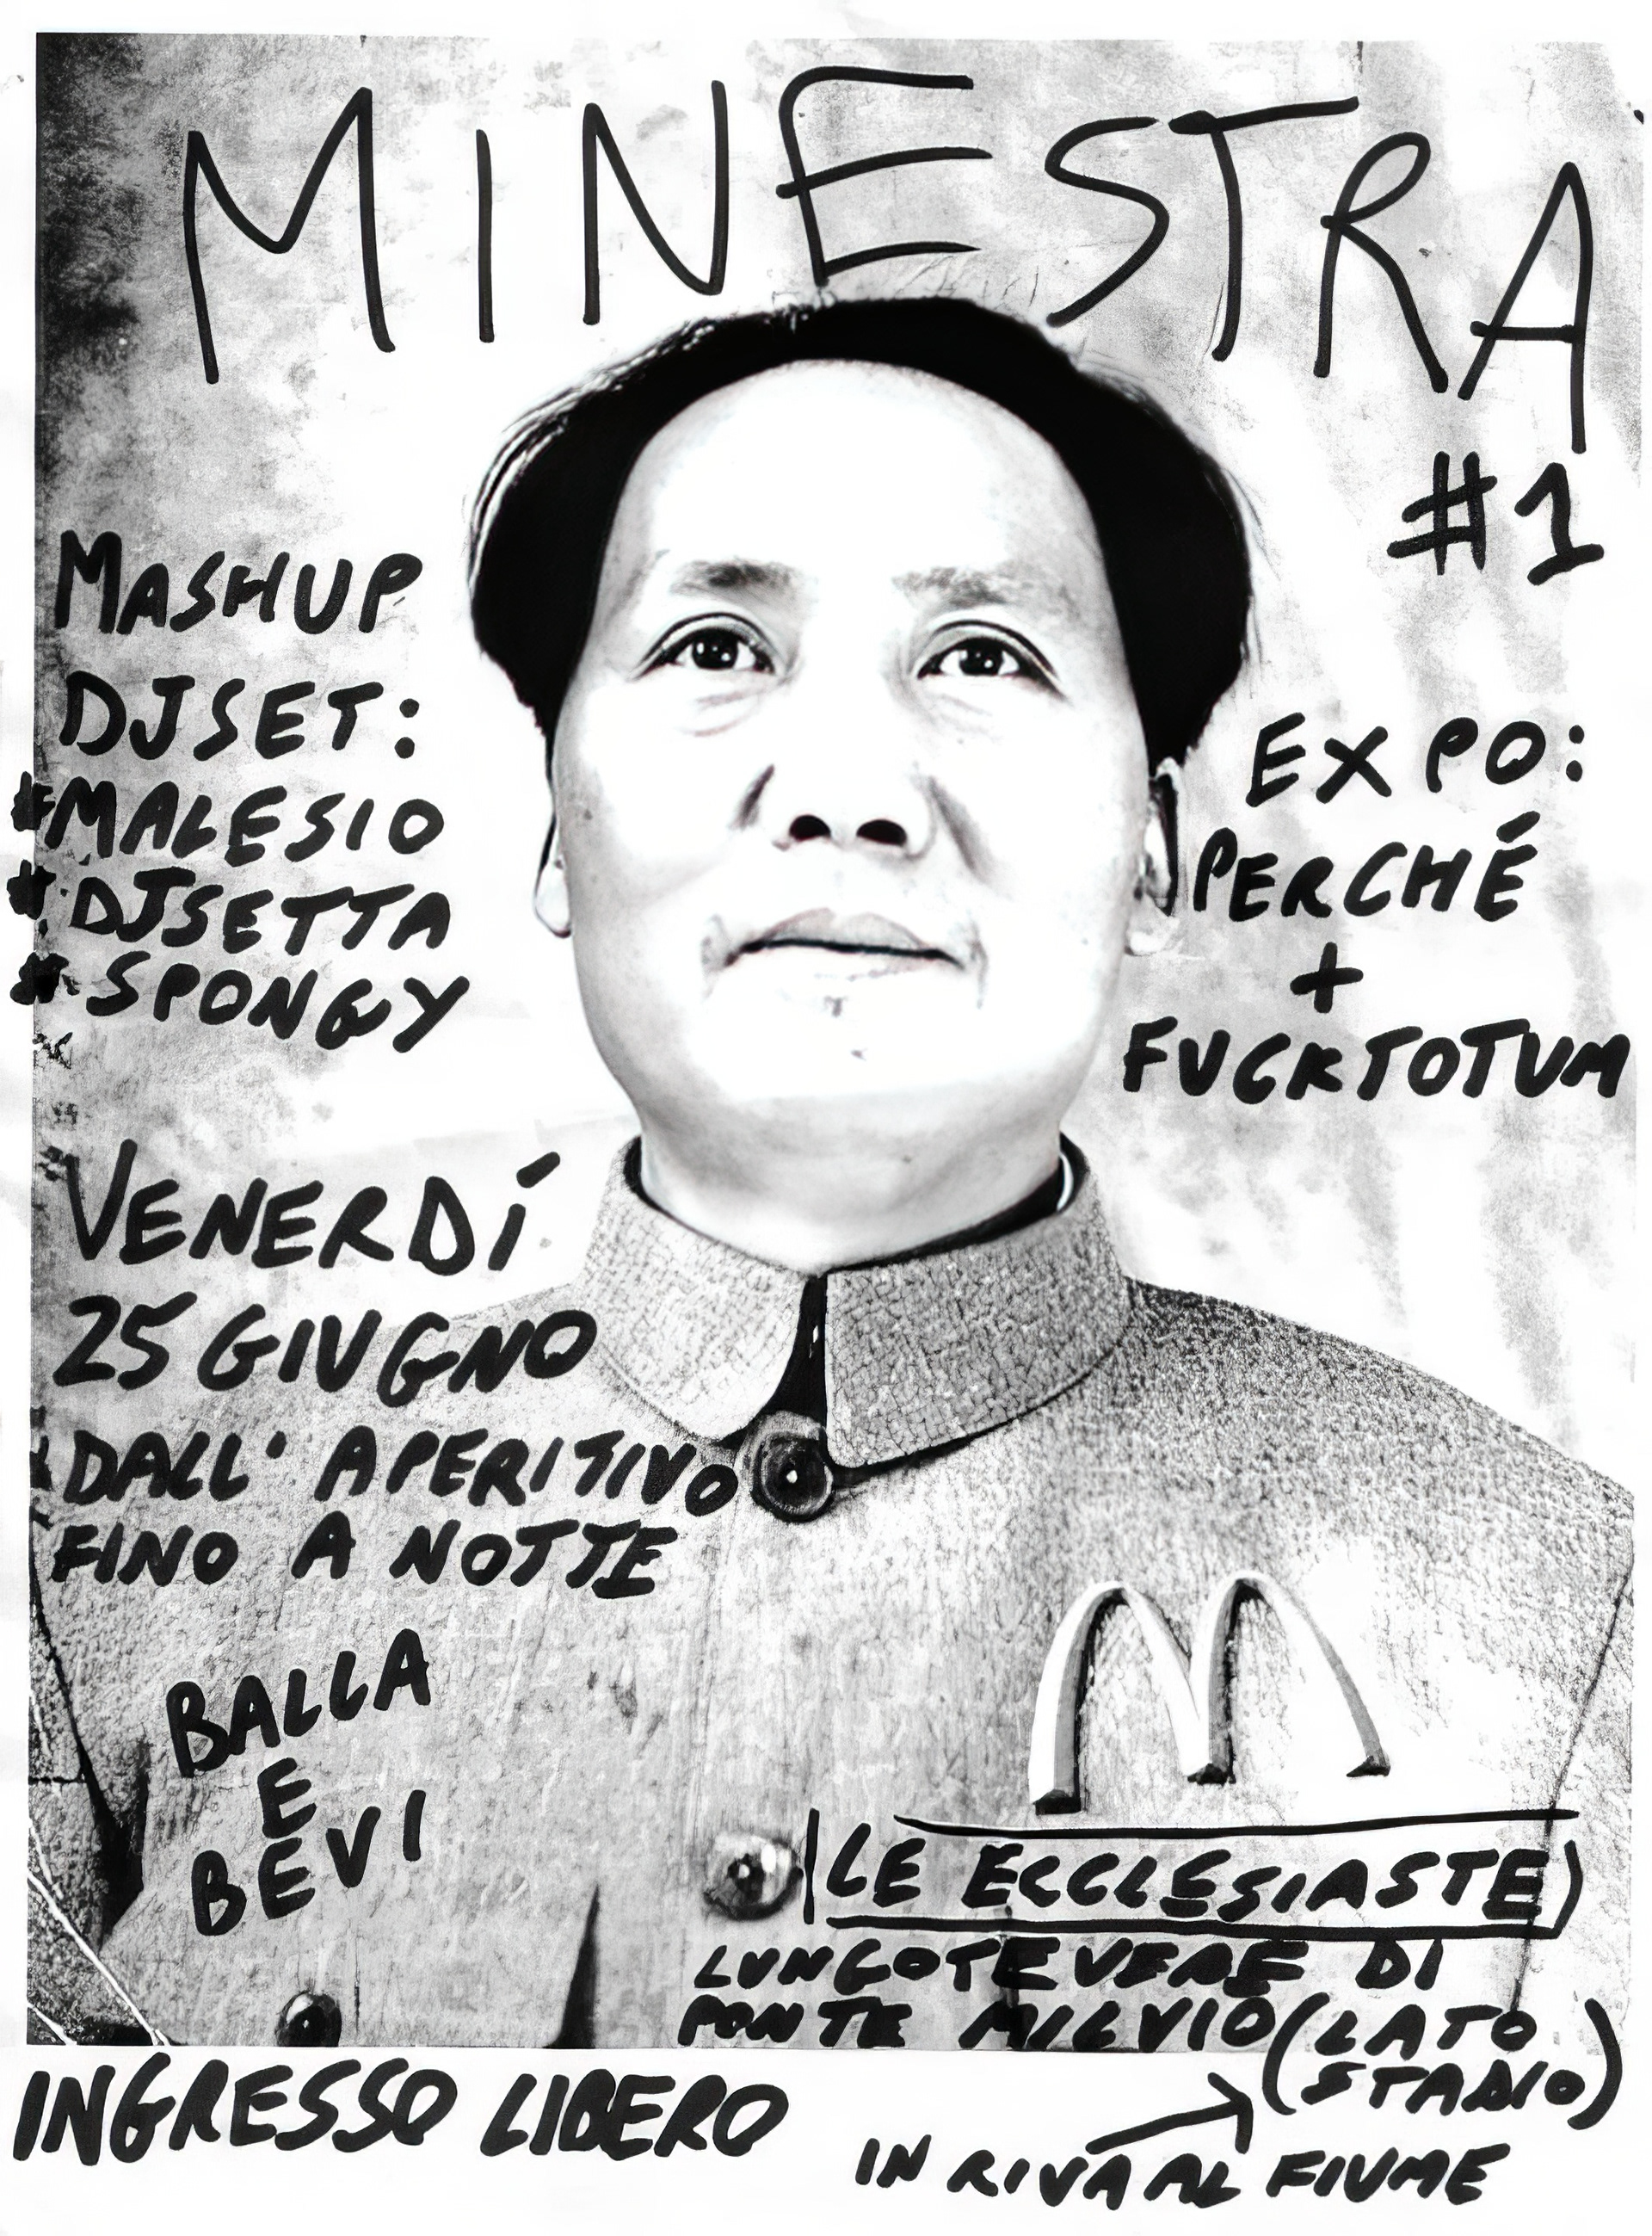 MINESTRA
#1
MASHUP
DJSET:
#MALESIO
#DJSETTA
#SPONGY
EXPO:
PERCHÉ
+
FUCKTOTUM
VENERDÍ
25 GIUGNO
DALL' APERITIVO
FINO A NOTTE
BALLA
E
BEVI
M
(LE ECCLESIASTE)
LUNGOTEVERE DI
PONTE MILVIO (LATO
STADIO)
IN RIVA AL FIUME
INGRESSO LIBERO